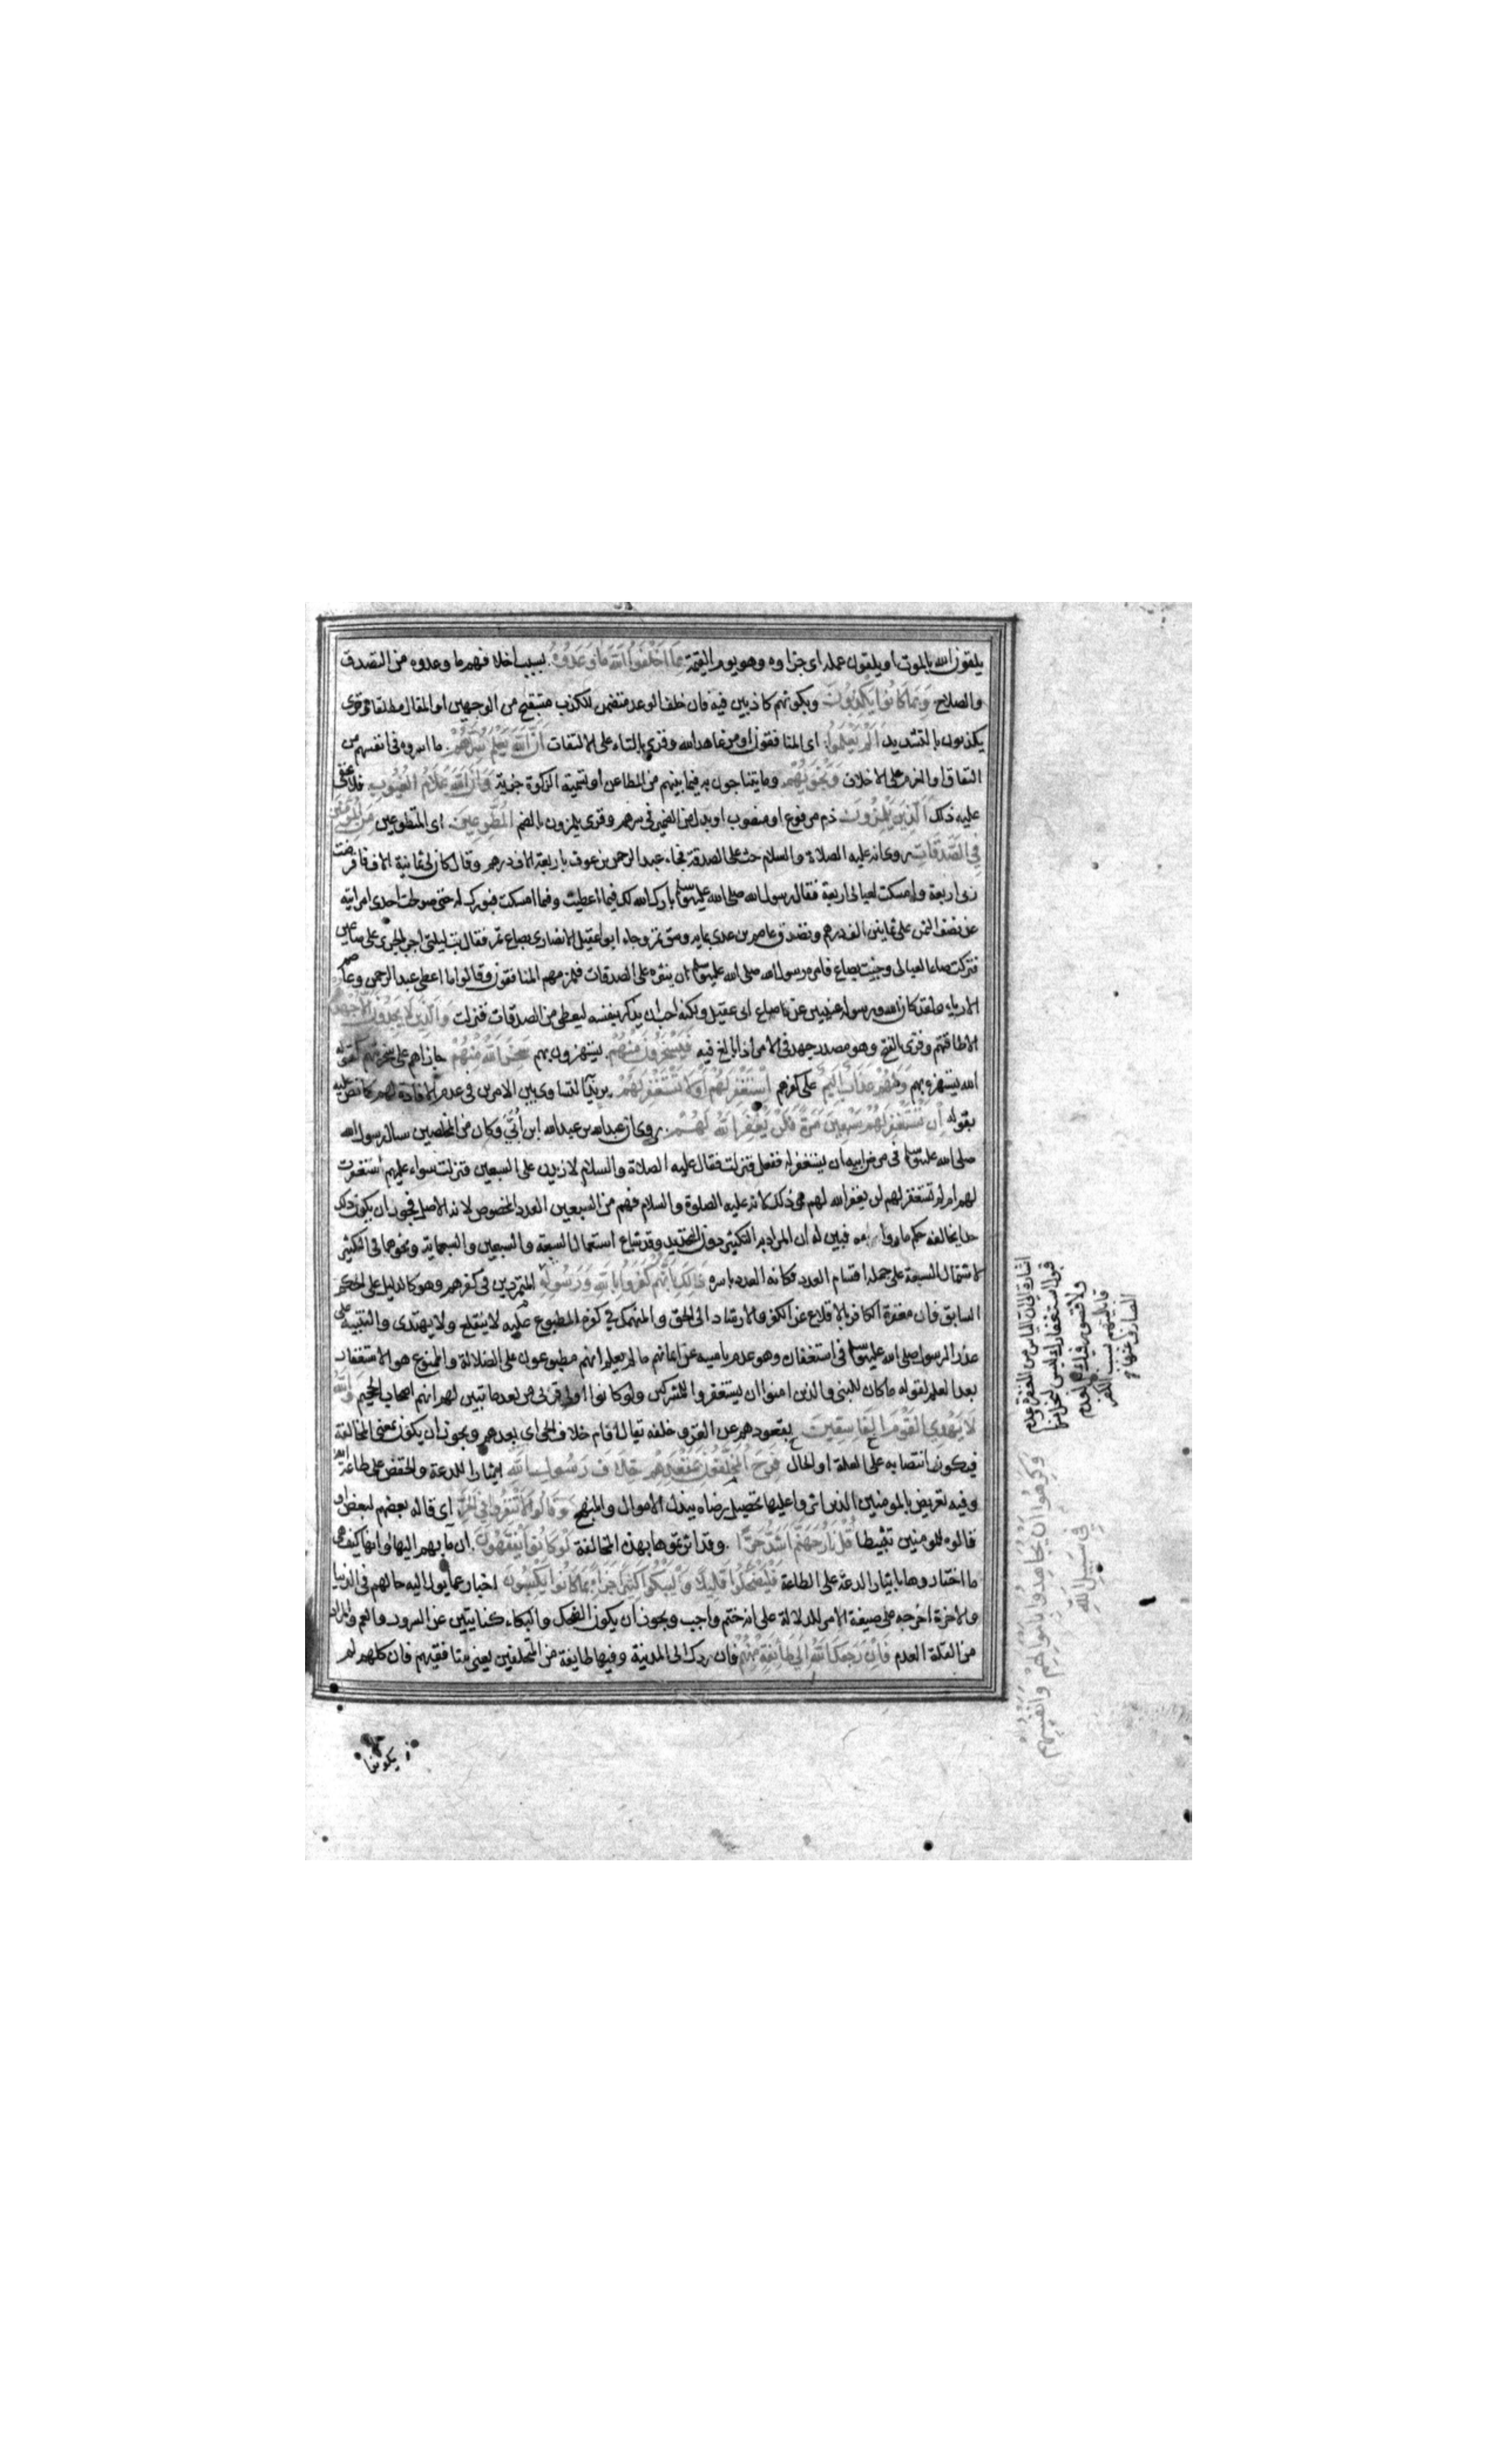 يلقون الله بالموت او يلقون عمله اى جزاوه وهو يوم القيمة بِمَا اَخْلَفُوا اللَّهَ مَا وَعَدُوهُ بسبب اخلافهم ما وعدوه من التصدق
والصلاح وَبِمَا كَانُوا يَكْذِبُونَ وبكونهم كاذبين فيه فان خلف الوعد متضمن للكذب مستقبح من الوجهين او المقال مطلقا وقرى
يكذبون بالتشديد اَلَمْ يَعْلَمُوا اى المنافقون او من عاهد الله وقرى بالتاء على الالتفات اَنَّ اللَّهَ يَعْلَمُ سِرَّهُمْ ما اسروه فى انفسهم من
النفاق او العزم على الاخلاف وَنَجْوَيهُمْ وما يتناجون به فيما بينهم من المطاعن او تسمية الزكوة جزية وَاَنَّ اللَّهَ عَلَّامُ الْغُيُوبِ فلا يخفى
عليه ذلك اَلَّذِينَ يَلْمِزُونَ ذم مرفوع او منصوب او بدل من الضمير فى سرهم وقرى يلمزون بالضم الْمُطَّوِّعِينَ اى المتطوعين مِنَ الْمُؤْمِنِينَ
فِي الصَّدَقَاتِ روى انه عليه الصلاة والسلام حث على الصدقة فجاء عبد الرحمن بن عوف باربعة الاف درهم وقال كان لى ثمانية الاف فاقرضت
ربى اربعة وامسكت لعيالى اربعة فقال رسول الله صلى الله عليه وسلم بارك الله لك فيما اعطيت وفيما امسكت فبورك له حتى صولحت احدى امراتيه
عن نصف الثمن على ثمانين الف درهم وتصدق عاصم بن عدى بمايه وسق تمر وجاء ابو عقيل الانصارى بصاع تمر فقال بت ليلتى اجر الجرير على صاعين
فتركت صاعا لعيالى وجئت بصاع فامره رسول الله صلى الله عليه وسلم ان ينثره على الصدقات فلمزهم المنافقون وقالوا ما اعطى عبد الرحمن وعاصم
الا رياء ولقد كان الله ورسوله غنيين عن صاع ابى عقيل ولكنه احب ان يذكر بنفسه ليعطى من الصدقات فنزلت وَالَّذِينَ لَا يَجِدُونَ اِلَّا جُهْدَهُمْ
الا طاقتهم وقرى بالفتح وهو مصدر جهد فى الامر اذا بالغ فيه فَيَسْخَرُونَ مِنْهُمْ يستهزؤن بهم سَخِرَ اللَّهُ مِنْهُمْ جازاهم على سخريتهم كقوله
الله يستهزء بهم وَلَهُمْ عَذَابٌ اَلِيمٌ على كفرهم اِسْتَغْفِرْ لَهُمْ اَوْ لَا تَسْتَغْفِرْ لَهُمْ يريد به التساوى بين الامرين فى عدم الافادة لهم كما نص عليه
بقوله اِنْ تَسْتَغْفِرْ لَهُمْ سَبْعِينَ مَرَّةً فَلَنْ يَغْفِرَ اللَّهُ لَهُمْ روى ان عبد الله بن عبد الله ابن اُبَيّ وكان من المخلصين سال رسول الله
صلى الله عليه وسلم فى مرض ابيه ان يستغفر له ففعل فنزلت فقال عليه الصلاة والسلام لازيدن على السبعين فنزلت سواء عليهم استغفرت
لهم ام لم تستغفر لهم لن يغفر الله لهم وذلك لانه عليه الصلوة والسلام فهم من السبعين العدد المخصوص لانه الاصل فجوز ان يكون ذلك
حدا يخالفه حكم ما وراءه فبين له ان المراد به التكثير دون التحديد وقد شاع استعمال السبعة والسبعين والسبعماية ونحوهما فى التكثير
لاشتمال السبعة على جملة اقسام العدد فكانه العدد باسره ذَلِكَ بِاَنَّهُمْ كَفَرُوا بِاللَّهِ وَرَسُولِهِ المتمردين فى كفرهم وهو كالدليل على الحكم
السابق فان مغفرة الكافر بالاقلاع عن الكفر والارشاد الى الحق والمنهمك فى كفره المطبوع عليه لا ينقلع ولا يهتدى والتنبيه على
عذر الرسول صلى الله عليه وسلم فى استغفاره وهو عدم ياسه عن ايمانهم ما لم يعلم انهم مطبوعون على الضلالة والممنوع هو الاستغفار
بعد العلم لقوله ما كان للنبى والذين امنوا ان يستغفروا للمشركين ولو كانوا اولى قربى من بعد ما تبين لهم انهم اصحاب الجحيم وَاللَّهُ
لَا يَهْدِي الْقَوْمَ الْفَاسِقِينَ بقعودهم عن الغزو خلفه يقال اقام خلاف الحى اى بعدهم ويجوز ان يكون بمعنى المخالفة
فيكون انتصابه على العلة او الحال فَرِحَ الْمُخَلَّفُونَ بِمَقْعَدِهِمْ خِلَافَ رَسُولِ اللَّهِ ايثارا للدعة والخفض على طاعة الله
وفيه تعريض بالمومنين الذين اثروا عليها تحصيل رضاه ببذل الاموال والمهج وَقَالُوا لَا تَنْفِرُوا فِي الْحَرِّ اى قاله بعضهم لبعض او
قالوه للمومنين تثبيطا قُلْ نَارُ جَهَنَّمَ اَشَدُّ حَرًّا وقد اثرتموها بهذه المخالفة لَوْ كَانُوا يَفْقَهُونَ ان مآبهم اليها او انها كيف هى
ما اختاروها بايثار الدعة على الطاعة فَلْيَضْحَكُوا قَلِيلًا وَلْيَبْكُوا كَثِيرًا جَزَاءً بِمَا كَانُوا يَكْسِبُونَ اخبار عما يول اليه حالهم فى الدنيا
والاخرة اخرجه على صيغة الامر للدلالة على انه حتم واجب ويجوز ان يكون الضحك والبكاء كنايتين عن السرور والغم والمراد
من القلة العدم فَاِنْ رَجَعَكَ اللَّهُ اِلَى طَائِفَةٍ مِنْهُمْ فان ردك الى المدينة وفيها طايفة من المتخلفين يعنى منافقيهم فان كلهم لم
يكونوا
اشارة الى ان الياس من المغفرة وعدم
قبول استغفارك ليس لبخل منا
ولا قصور فيك بل لعدم
قابليتهم بسبب الكفر
الصارف عنها
وَكَرِهُوا اَنْ يُجَاهِدُوا بِاَمْوَالِهِمْ وَاَنْفُسِهِمْ
فِي سَبِيلِ اللَّهِ